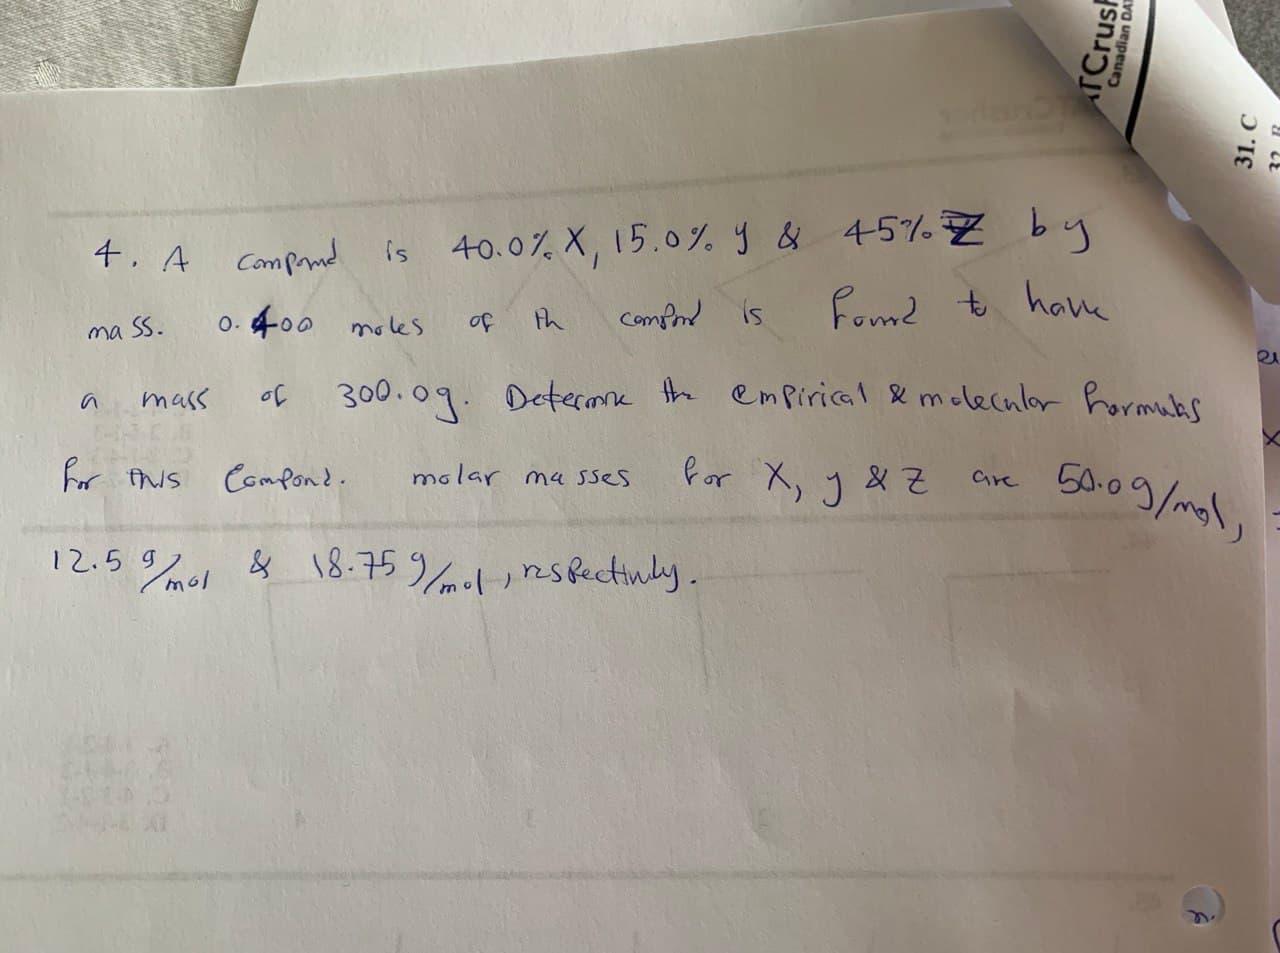 ATCrush
Canadian DAT
31. C
4. A compond is 40.0% X, 15.0% y & 45% Z by
mass. 0.400 moles of th compond is found to have
a mass of 300.0g. Determine the empirical & molecular formulas
for this compond. molar masses for X, y & Z are 50.0 g/mol,
12.5 g/mol & 18.75 g/mol, respectively.